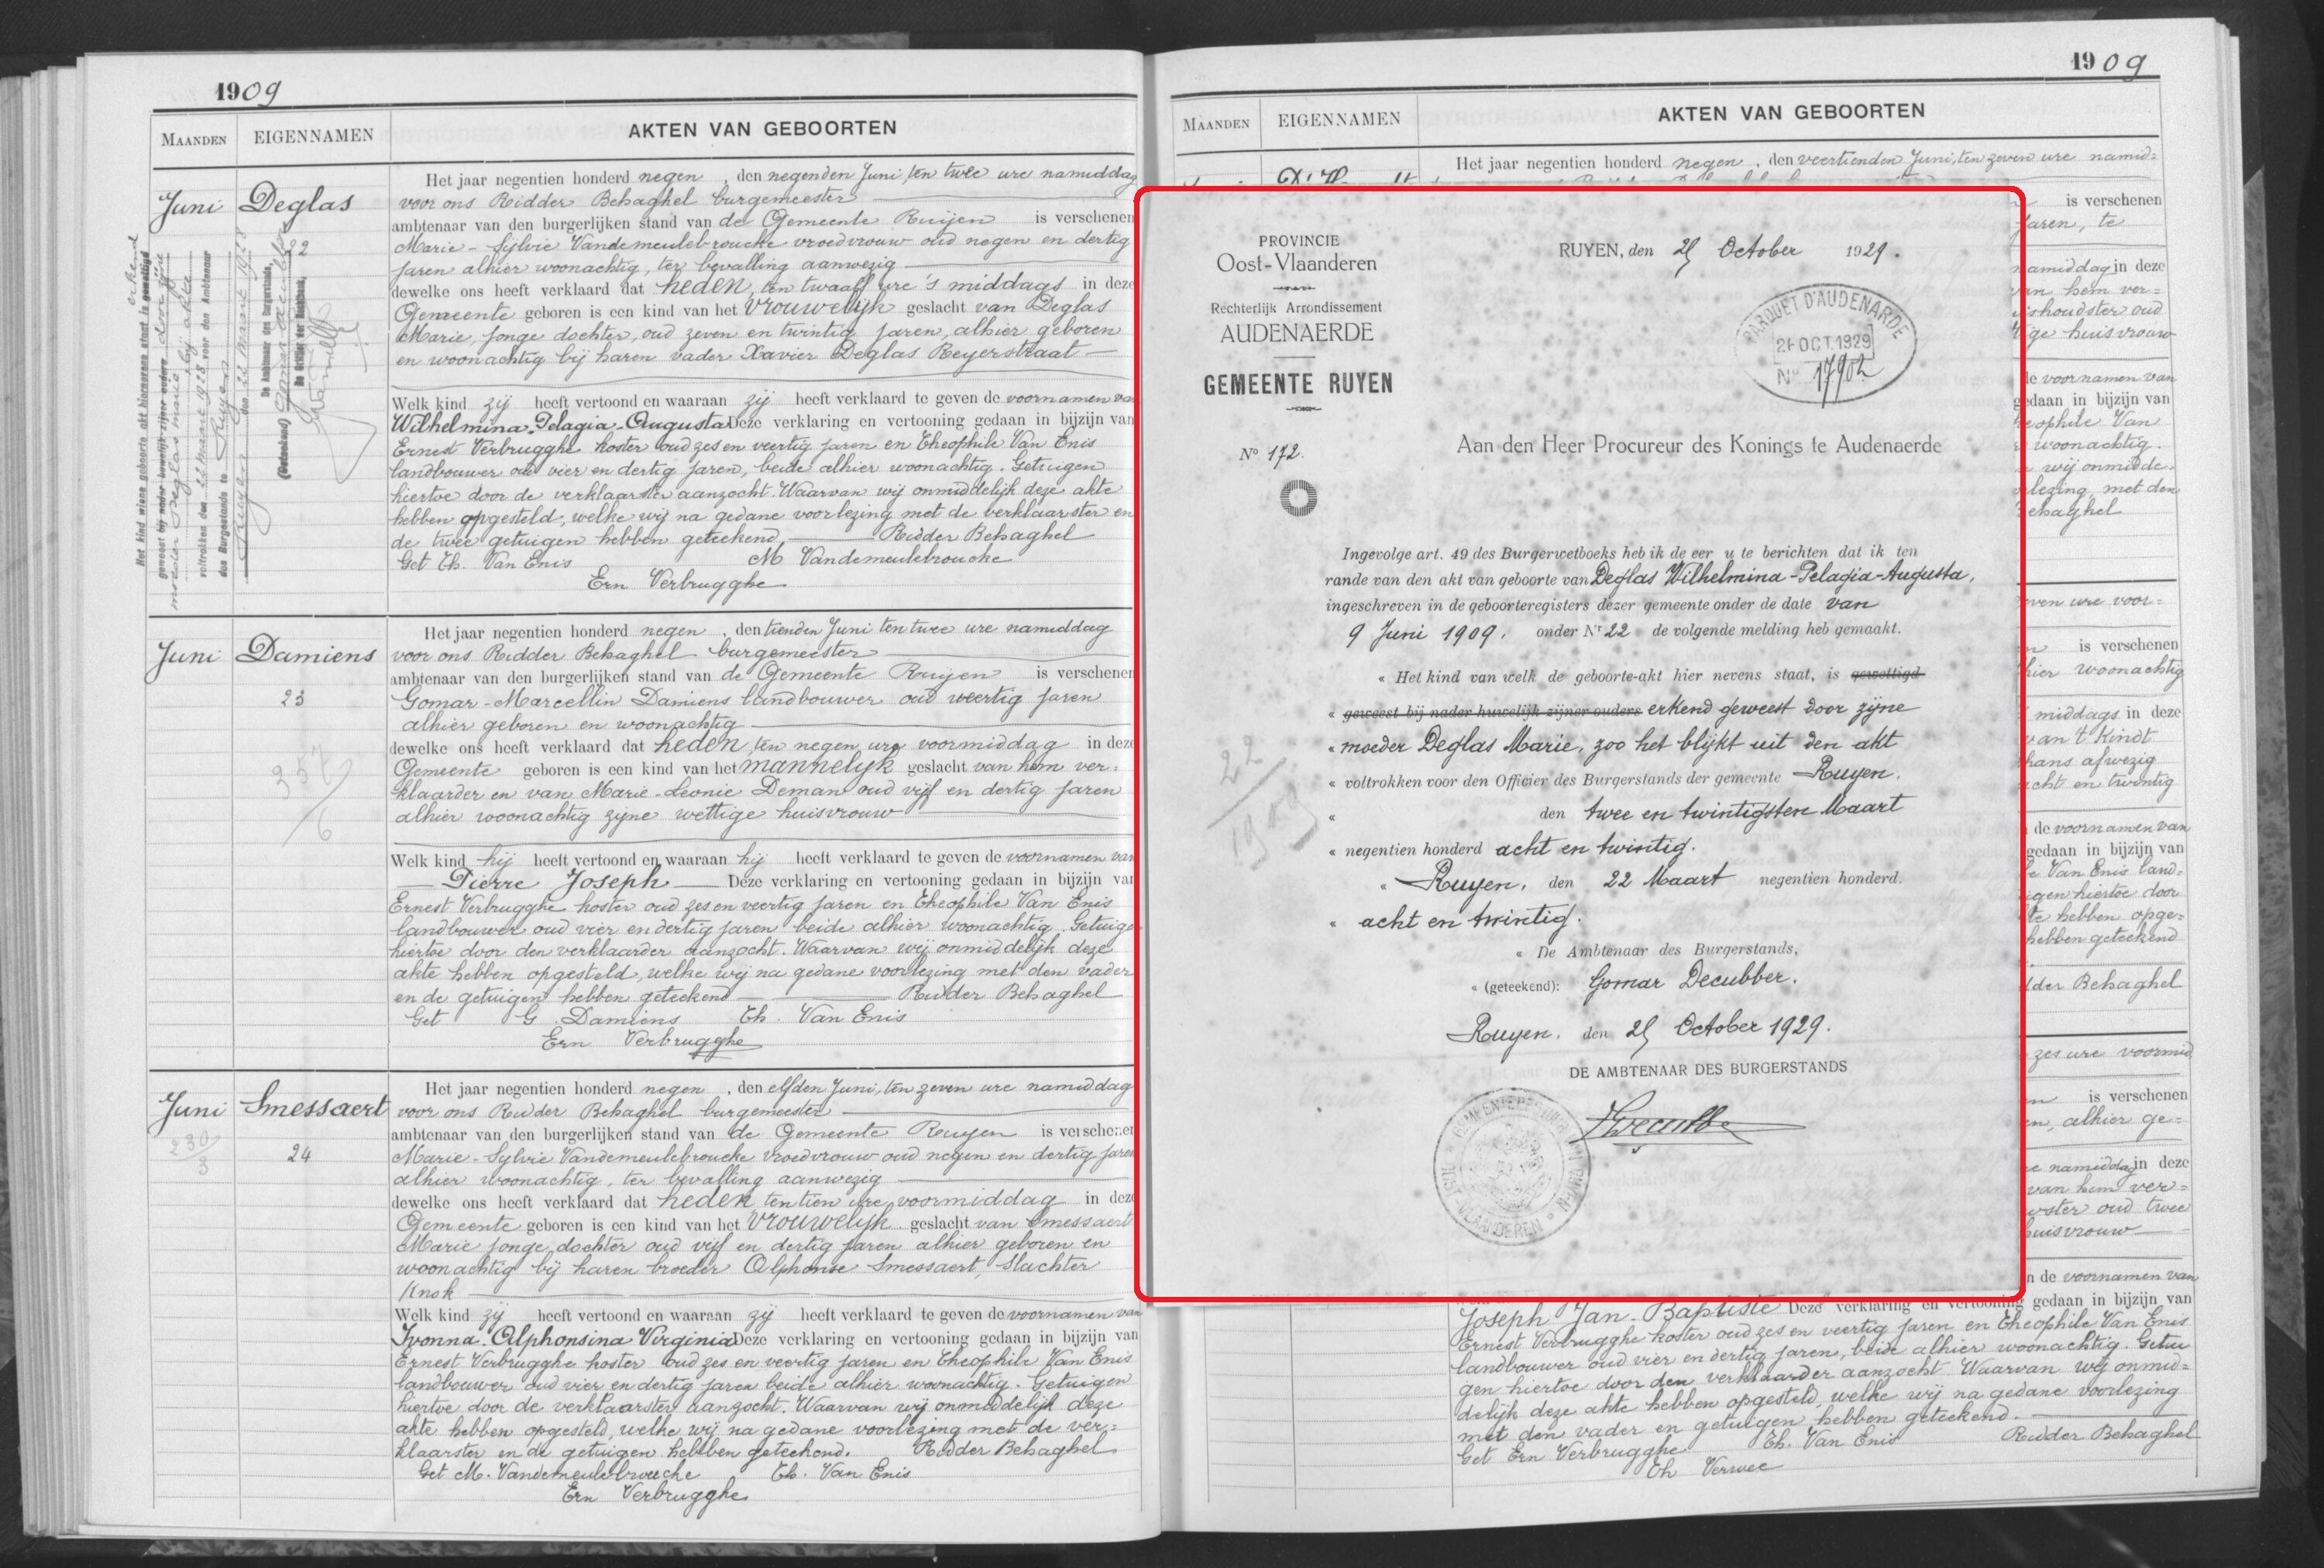 1909
MAANDEN
EIGENNAMEN
AKTEN VAN GEBOORTEN
Juni
Deglas
22
Het kind wiens geboorte akt hiernevens staat is gewettigd erkend
geweest bij nader huwelijk zijner ouders door zijne
moeder Deglas Marie bij akte
voltrokken den 22 Maart 1928 voor den Ambtenaar
des Burgerstands te Ruyen
Ruyen den 22 Maart 1928
De Ambtenaar des Burgerstands,
(Geteekend) Gomar Decubber
De Griffier der Rechtbank,
Het jaar negentien honderd negen, den negenden Juni, ten twee ure namiddag
voor ons Ridder Behaghel burgemeester
ambtenaar van den burgerlijken stand van de Gemeente Ruijen is verschenen
Marie-Sylvie Vandemeulebroucke vroedvrouw oud negen en dertig
jaren alhier woonachtig, ter bevalling aanwezig
dewelke ons heeft verklaard dat heden, ten twaalf ure 's middags in deze
Gemeente geboren is een kind van het vrouwelijk geslacht van Deglas
Marie, jonge dochter, oud zeven en twintig jaren, alhier geboren
en woonachtig bij haren vader Xavier Deglas Beyerstraat
Welk kind zij heeft vertoond en waaraan zij heeft verklaard te geven de voornamen van
Wilhelmina-Pelagia-Augusta Deze verklaring en vertooning gedaan in bijzijn van
Ernest Verbrugghe koster oud zes en veertig jaren en Theophile Van Enis
landbouwer oud vier en dertig jaren, beide alhier woonachtig. Getuigen
hiertoe door de verklaarster aanzocht. Waarvan wij onmiddelijk deze akte
hebben opgesteld, welke wij na gedane voorlezing met de verklaarster en
de twee getuigen hebben geteekend. Ridder Behaghel
Get Th. Van Enis M Vandemeulebroucke
Ern Verbrugghe
Juni
Damiens
23
357/6
Het jaar negentien honderd negen, den tienden Juni ten twee ure namiddag
voor ons Ridder Behaghel burgemeester
ambtenaar van den burgerlijken stand van de Gemeente Ruijen is verschenen
Gomar-Marcellin Damiens landbouwer oud veertig jaren
alhier geboren en woonachtig
dewelke ons heeft verklaard dat heden, ten negen ure voormiddag in deze
Gemeente geboren is een kind van het mannelyk geslacht van hem ver=
klaarder en van Marie-Leonie Deman oud vijf en dertig jaren
alhier woonachtig zijne wettige huisvrouw
Welk kind hij heeft vertoond en waaraan hij heeft verklaard te geven de voornamen van
Pierre Joseph Deze verklaring en vertooning gedaan in bijzijn van
Ernest Verbrugghe koster oud zes en veertig jaren en Theophile Van Enis
landbouwer oud vier en dertig jaren beide alhier woonachtig. Getuigen
hiertoe door den verklaarder aanzocht. Waarvan wij onmiddelijk deze
akte hebben opgesteld, welke wij na gedane voorlezing met den vader
en de getuigen hebben geteekend Ridder Behaghel
Get G Damiens Th. Van Enis
Ern Verbrugghe
Juni
Smessaert
24
230/3
Het jaar negentien honderd negen, den elfden Juni, ten zeven ure namiddag
voor ons Ridder Behaghel burgemeester
ambtenaar van den burgerlijken stand van de Gemeente Ruyen is verschenen
Marie-Sylvie Vandemeulebroucke vroedvrouw oud negen en dertig jaren
alhier woonachtig, ter bevalling aanwezig
dewelke ons heeft verklaard dat heden ten tien ure voormiddag in deze
Gemeente geboren is een kind van het vrouwelyk geslacht van Smessaert
Marie jonge dochter oud vijf en dertig jaren alhier geboren en
woonachtig bij haren broeder Alphonse Smessaert, slachter
Knok
Welk kind zij heeft vertoond en waaraan zij heeft verklaard te geven de voornamen van
Ivonna-Alphonsina Virginia Deze verklaring en vertooning gedaan in bijzijn van
Ernest Verbrugghe koster oud zes en veertig jaren en Theophile Van Enis
landbouwer oud vier en dertig jaren beide alhier woonachtig. Getuigen
hiertoe door de verklaarster aanzocht. Waarvan wij onmiddelijk deze
akte hebben opgesteld, welke wij na gedane voorlezing met de ver=
klaarster en de getuigen hebben geteekend. Ridder Behaghel
Get M. Vandemeulebroucke Th. Van Enis
Ern Verbrugghe
1909
MAANDEN
EIGENNAMEN
AKTEN VAN GEBOORTEN
Het jaar negentien honderd negen, den veertienden Juni, ten zeven ure namid=
PROVINCIE
Oost-Vlaanderen
Rechterlijk Arrondissement
AUDENAERDE
GEMEENTE RUYEN
No 172.
RUYEN, den 25 October 1929.
PARQUET D'AUDENARDE
26 OCT. 1929
No 17902
Aan den Heer Procureur des Konings te Audenaerde
Ingevolge art. 49 des Burgerwetboeks heb ik de eer u te berichten dat ik ten
rande van den akt van geboorte van Deglas Wilhelmina-Pelagia-Augusta,
ingeschreven in de geboorteregisters dezer gemeente onder de date van
9 Juni 1909, onder Nr 22 de volgende melding heb gemaakt.
« Het kind van welk de geboorte-akt hier nevens staat, is gewettigd
« geweest bij nader huwelijk zijner ouders erkend geweest door zijne
« moeder Deglas Marie, zoo het blijkt uit den akt
« voltrokken voor den Officier des Burgerstands der gemeente Ruyen,
« den twee en twintigsten Maart
« negentien honderd acht en twintig.
« Ruyen, den 22 Maart negentien honderd.
« acht en twintig.
« De Ambtenaar des Burgerstands,
« (geteekend): Gomar Decubber.
Ruyen, den 25 October 1929.
DE AMBTENAAR DES BURGERSTANDS
22/1909
is verschenen
jaren, te
namiddag in deze
van hem ver=
huishoudster oud
wettige huisvrouw
de voornamen van
gedaan in bijzijn van
Theophile Van
woonachtig.
wij onmidde=
lezing met den
Behaghel
zeven ure voor=
is verschenen
alhier woonachtig
middags in deze
van 't Kindt
thans afwezig
acht en twintig
de voornamen van
gedaan in bijzijn van
Van Enis land=
igen hiertoe door
hebben opge=
hebben geteekend
Ridder Behaghel
zes ure voormid
is verschenen
alhier ge=
namiddag in deze
van hem ver=
oud twee
huisvrouw
de voornamen van
Joseph Jan-Baptiste Deze verklaring en vertooning gedaan in bijzijn van
Ernest Verbrugghe koster oud zes en veertig jaren en Theophile Van Enis
landbouwer oud vier en dertig jaren, beide alhier woonachtig. Getui
gen hiertoe door den verklaarder aanzocht. Waarvan wij onmid=
delijk deze akte hebben opgesteld welke wij na gedane voorlezing
met den vader en getuigen hebben geteekend.
Get Ern Verbrugghe Th. Van Enis Ridder Behaghel
Th Verwee